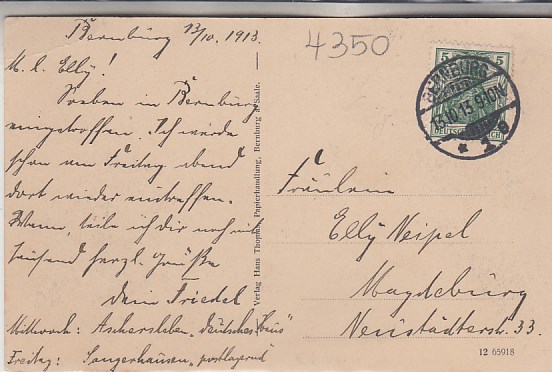 Bernburg 13/10. 1913.
M. l. Elly!
Soeben in Bernburg
eingetroffen. Ich werde
schon am Freitag abend
dort wieder eintreffen.
Wann, teile ich dir noch mit
Tausend herzl. Grüße
dein Friedel
Mittwoch: Aschersleben „Deutsches Haus"
Freitag: Sangerhausen „postlagernd"
Verlag Hans Thophan, Papierhandlung, Bernburg a. Saale.
4350
5 5
BERNBURG
13.10.13. 9-10N.
DEUTSCHES REICH
Fräulein
Elly Neipel
Magdeburg
Neustädterstr. 33.
12 65918